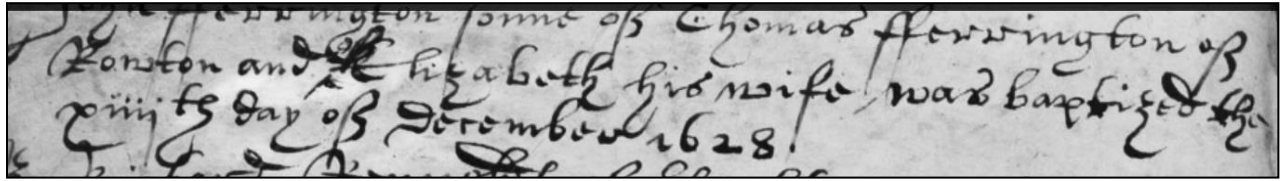 John fferrington sonne of Thomas fferrington of
Rowton and Elizabeth his wife was baptized the
xiiijth day of December 1628.